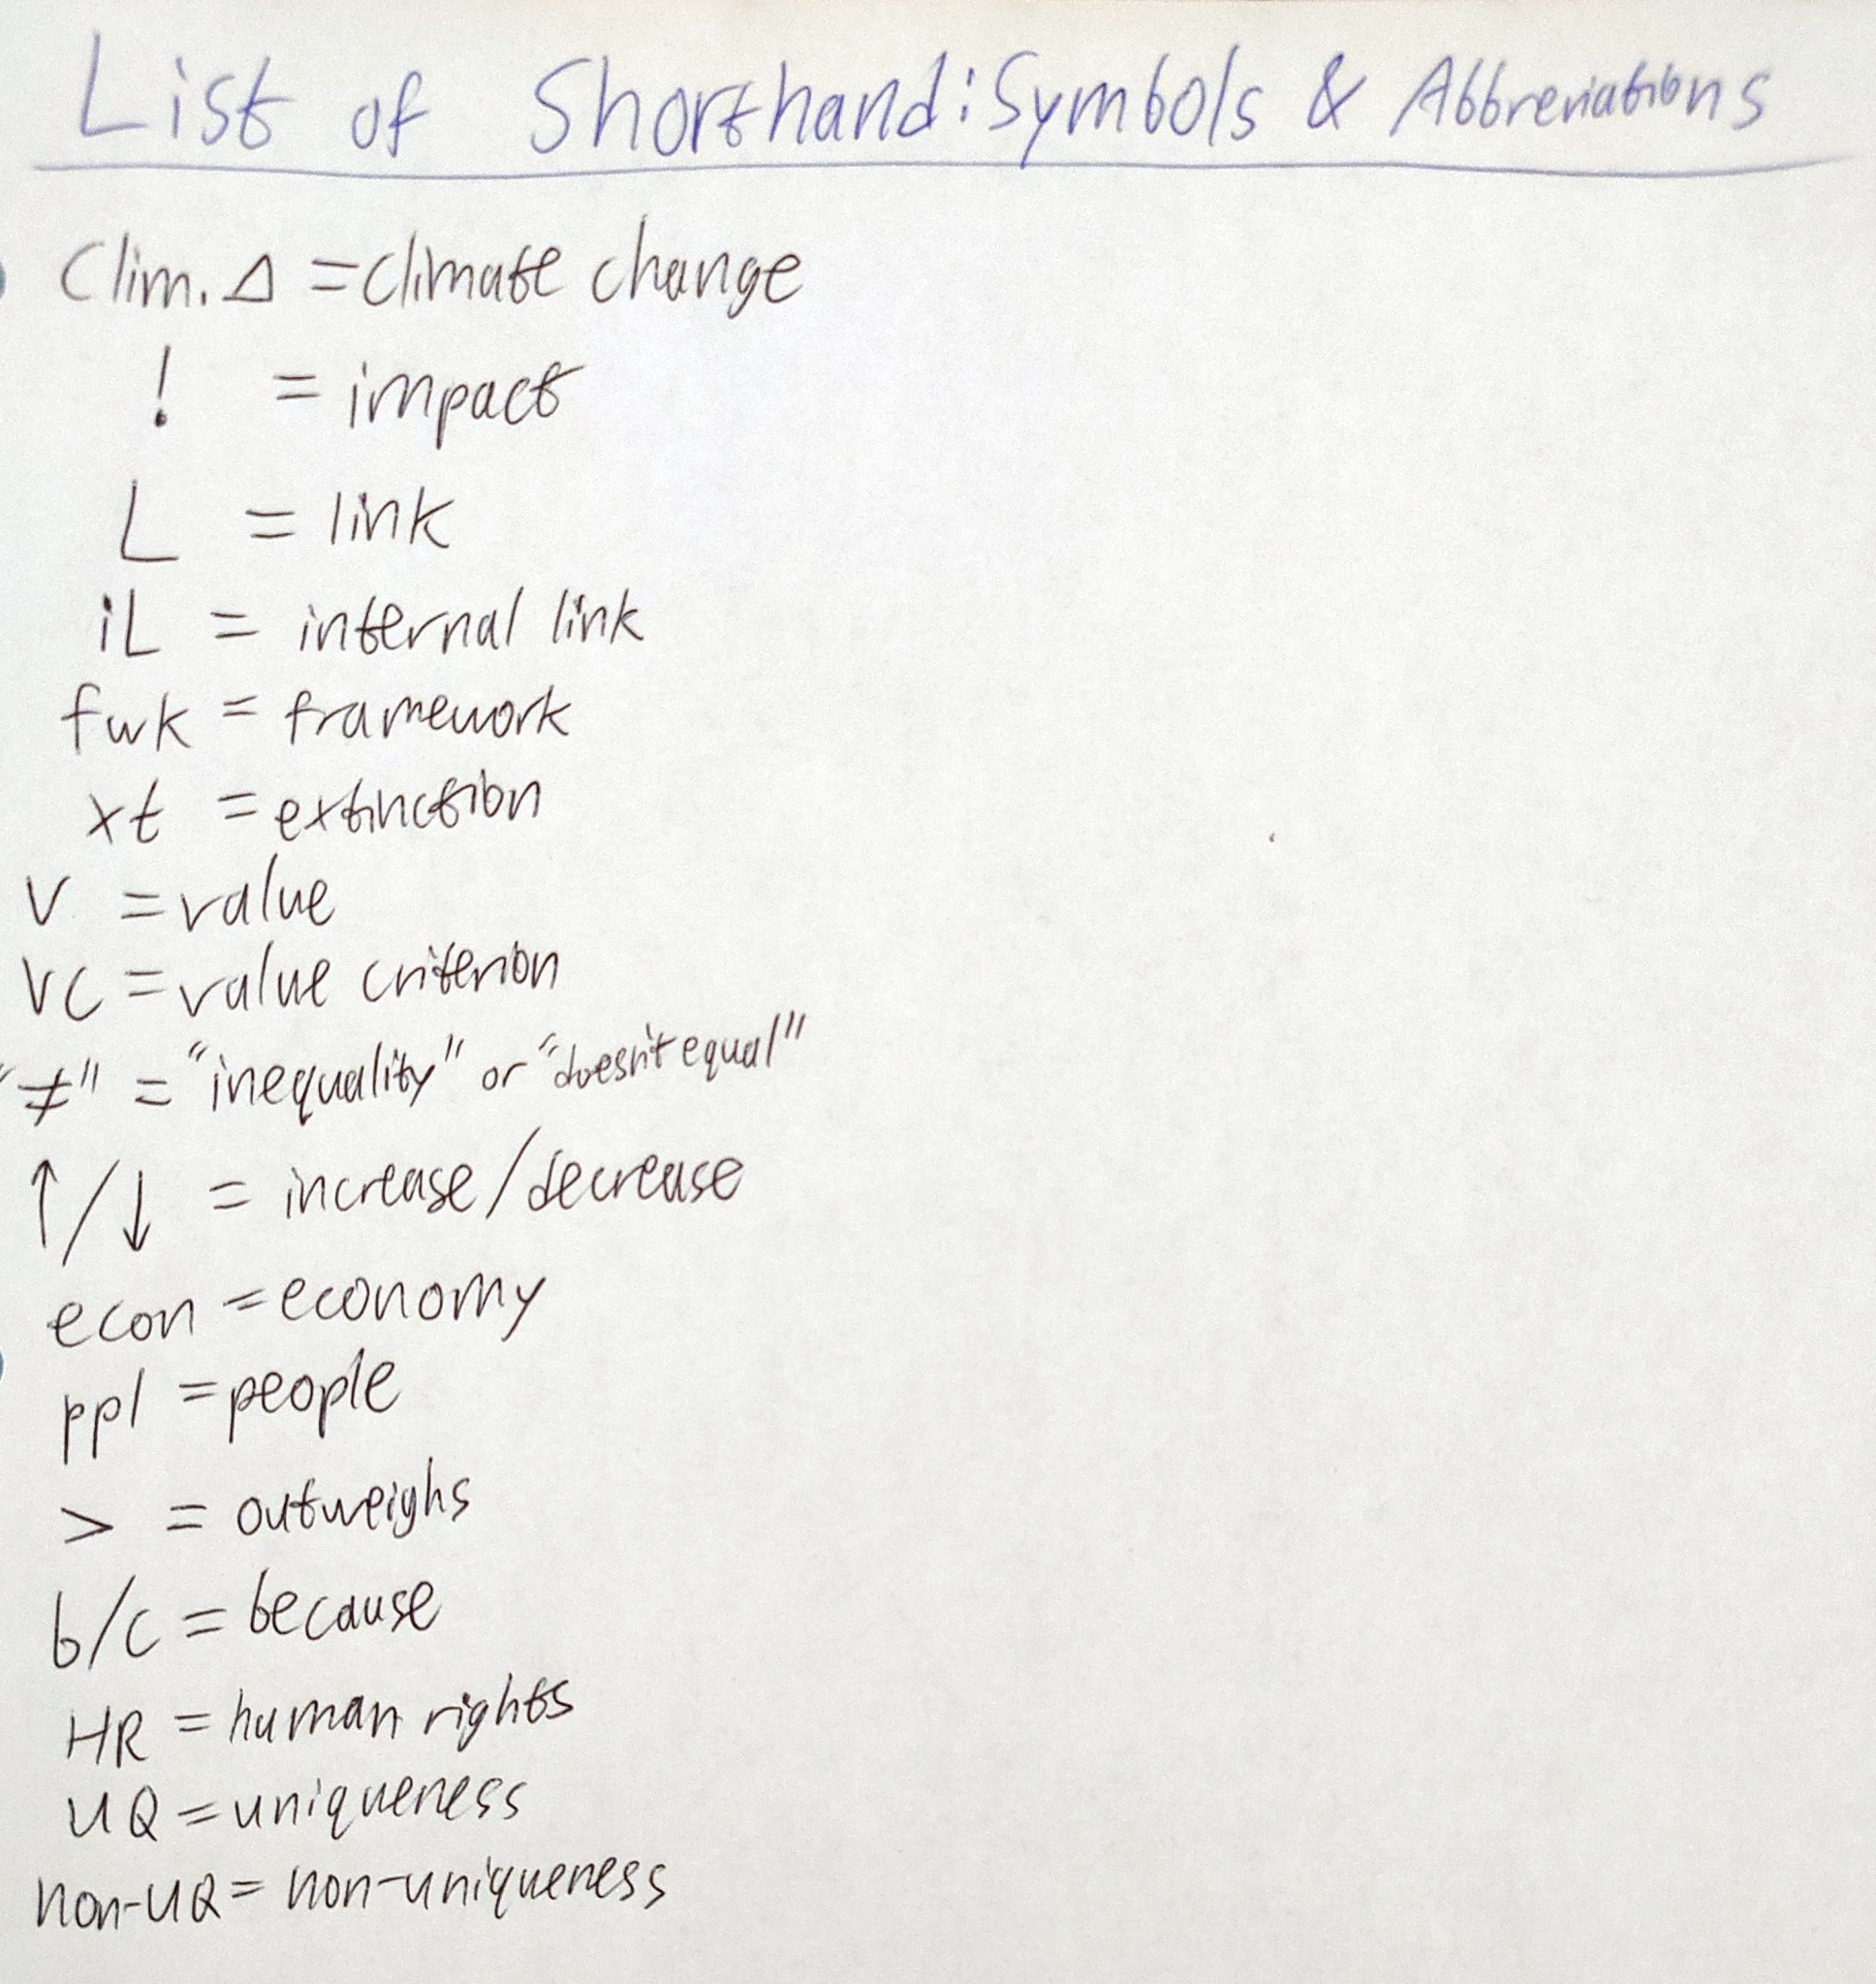 List of Shorthand: Symbols & Abbreviations
Clim. Δ = climate change
! = impact
L = link
iL = internal link
fwk = framework
xt = extinction
V = value
VC = value criterion
"≠" = "inequality" or "doesn't equal"
↑/↓ = increase/decrease
econ = economy
ppl = people
> = outweighs
b/c = because
HR = human rights
UQ = uniqueness
non-UQ = non-uniqueness